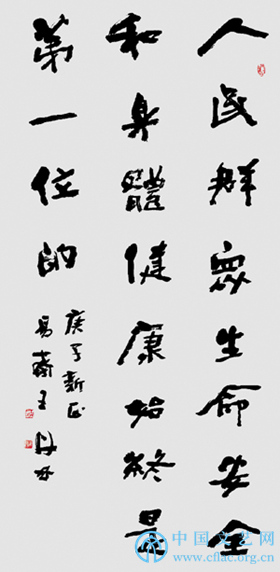 人民群眾生命安全
和身體健康始終是
第一位的
庚子新正
中国文艺网
www.cflac.org.cn